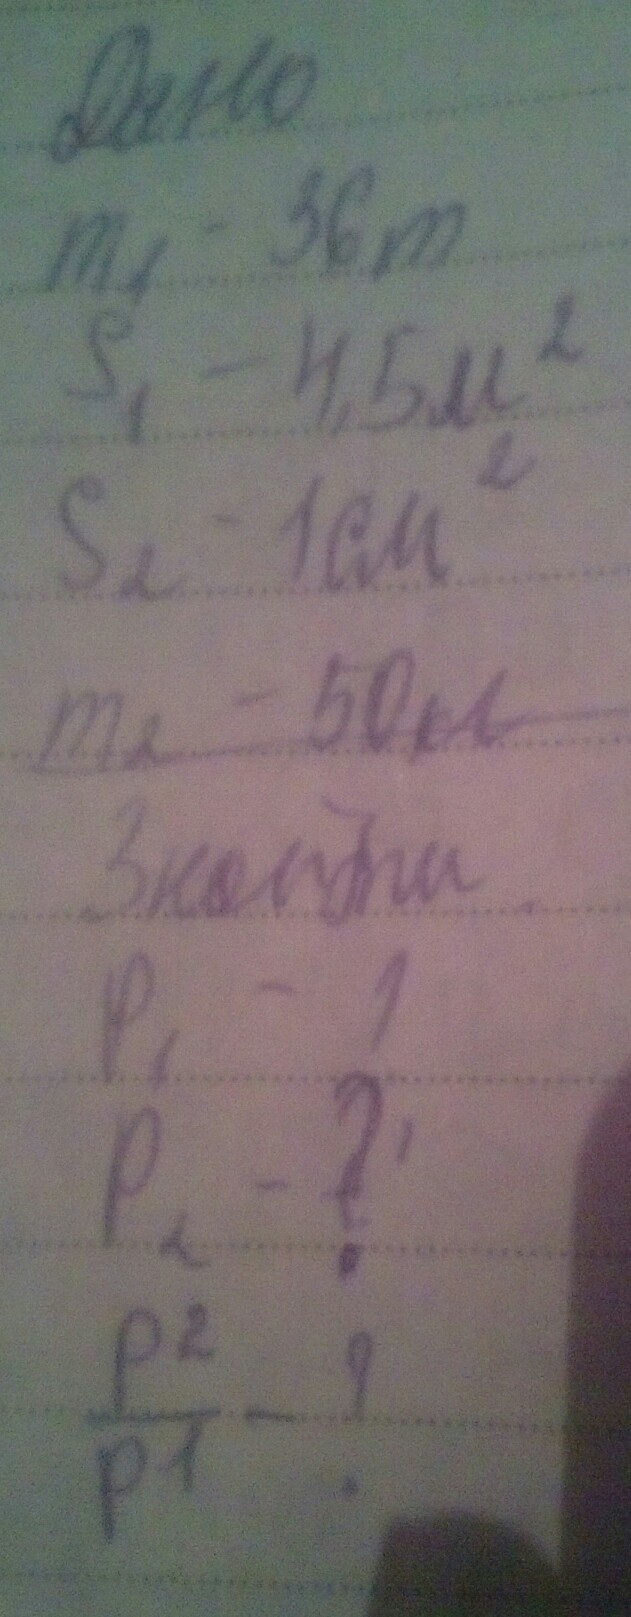 Дано
m₁ - 36 т
S₁ - 4,5 м²
S₂ - 1 см²
m₂ - 50 кг
Знайти
P₁ - ?
P₂ - ?
P2
— - ?
P1